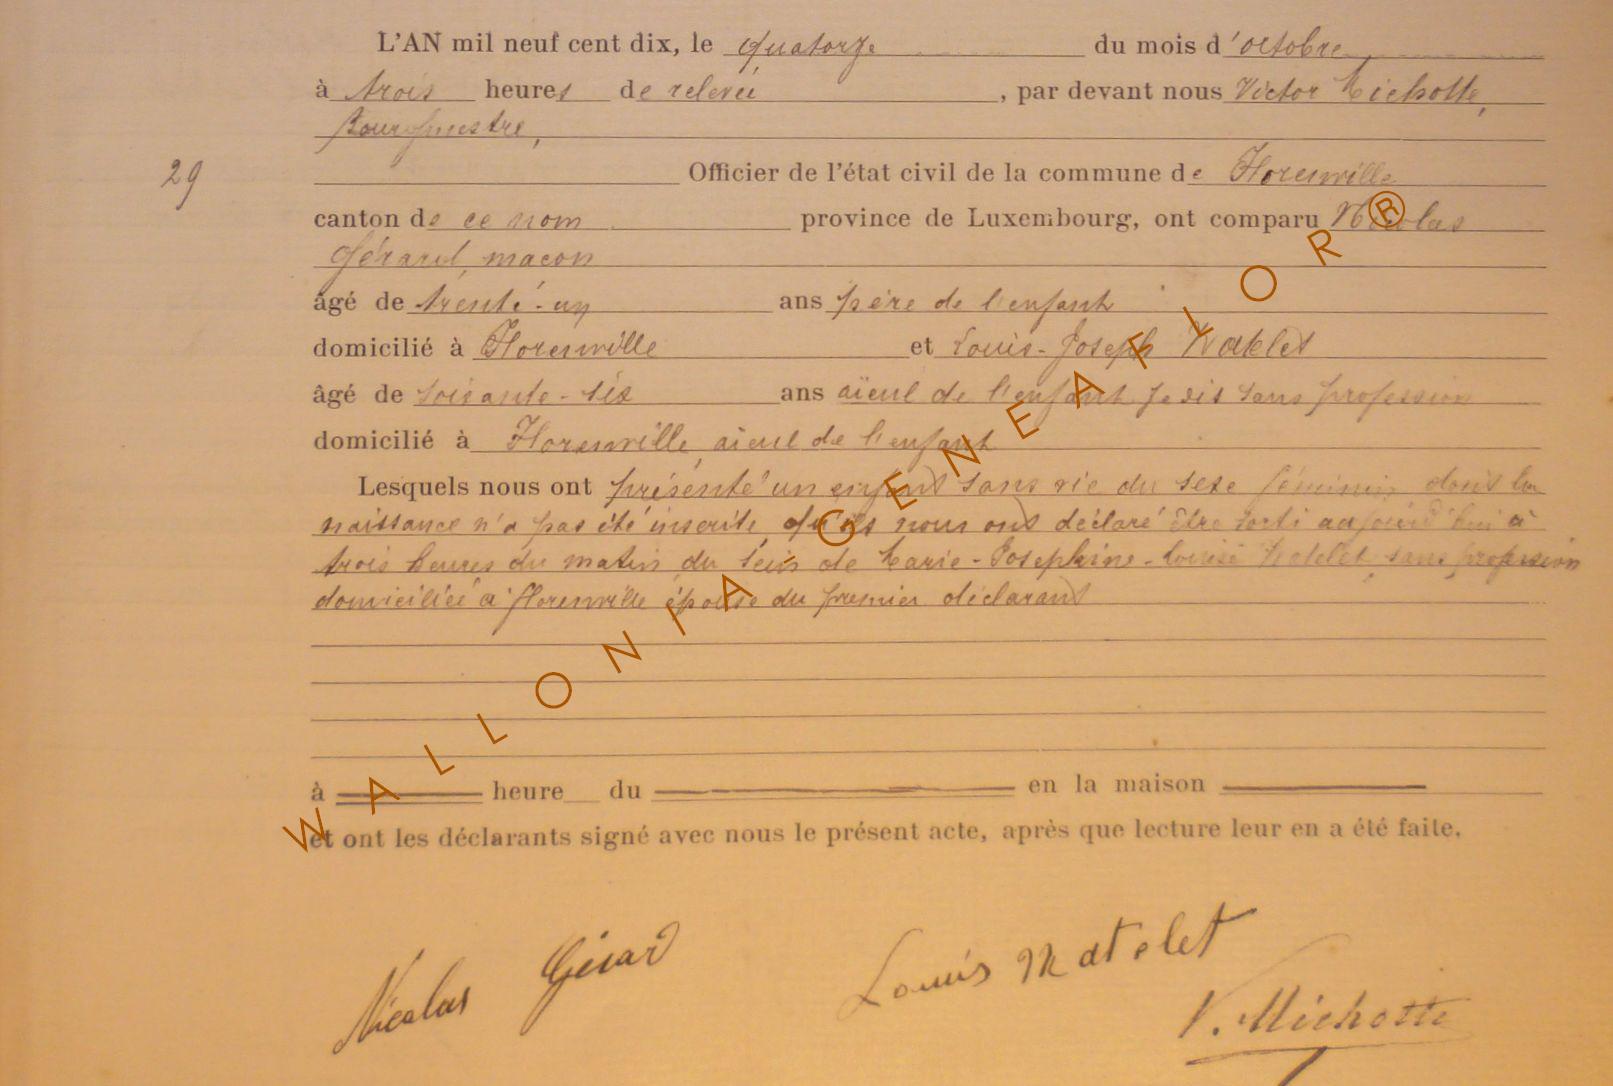 L'AN mil neuf cent dix, le quatorze du mois d'octobre
à trois heures de relevée, par devant nous Victor Michotte,
Bourgmestre,
29 Officier de l'état civil de la commune de Florenville
canton de ce nom province de Luxembourg, ont comparu Nicolas
Gérard, maçon
âgé de trente-un ans père de l'enfant
domicilié à Florenville et Louis-Joseph Watelet
âgé de soixante-six ans aïeul de l'enfant sans profession
domicilié à Florenville, aïeul de l'enfant
Lesquels nous ont présenté un enfant sans vie du sexe féminin dont la
naissance n'a pas été inscrite, qu'ils nous ont déclaré être sorti aujourd'hui à
trois heures du matin du sein de Marie-Josephine-Louise Watelet, sans profession
domiciliée à Florenville épouse du premier déclarant
à heure du en la maison
et ont les déclarants signé avec nous le présent acte, après que lecture leur en a été faite.
Nicolas Gérard Louis Watelet
V. Michotte
WALLONIA-GENEAFLOR®